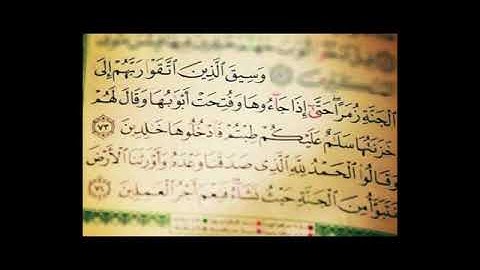 وَسِيقَ ٱلَّذِينَ ٱتَّقَوْا۟ رَبَّهُمْ إِلَى
ٱلْجَنَّةِ زُمَرًا ۖ حَتَّىٰٓ إِذَا جَآءُوهَا وَفُتِحَتْ أَبْوَٰبُهَا وَقَالَ لَهُمْ
خَزَنَتُهَا سَلَٰمٌ عَلَيْكُمْ طِبْتُمْ فَٱدْخُلُوهَا خَٰلِدِينَ ٧٣
وَقَالُوا۟ ٱلْحَمْدُ لِلَّهِ ٱلَّذِى صَدَقَنَا وَعْدَهُۥ وَأَوْرَثَنَا ٱلْأَرْضَ
نَتَبَوَّأُ مِنَ ٱلْجَنَّةِ حَيْثُ نَشَآءُ ۖ فَنِعْمَ أَجْرُ ٱلْعَٰمِلِينَ ٧٤